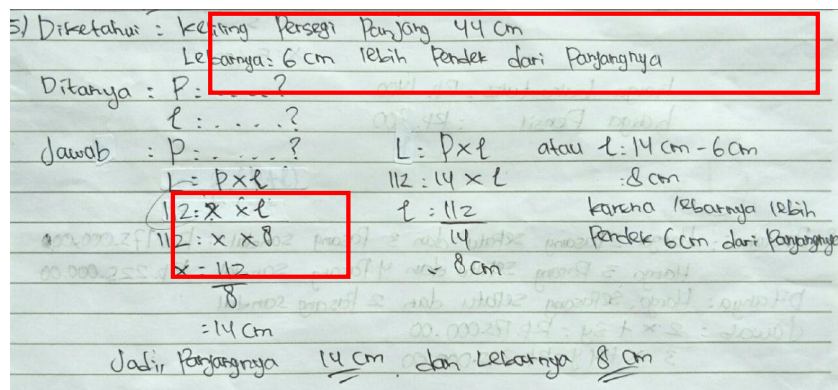 5) Diketahui : keliling Persegi Panjang 44 cm
Lebarnya: 6 cm lebih Pendek dari Panjangnya
Ditanya : P: . . . . ?
l : . . . . ?
Jawab : P: . . . . ?
L: P x l
112: x x l
112: x x 8
x = 112
8
=14 cm
L: P x l
112 : 14 x l
l : 112
14
= 8 cm
atau l: 14 cm - 6 cm
:8 cm
karena lebarnya lebih
Pendek 6 cm dari Panjangnya
Jadi, Panjangnya 14 cm dan Lebarnya 8 cm